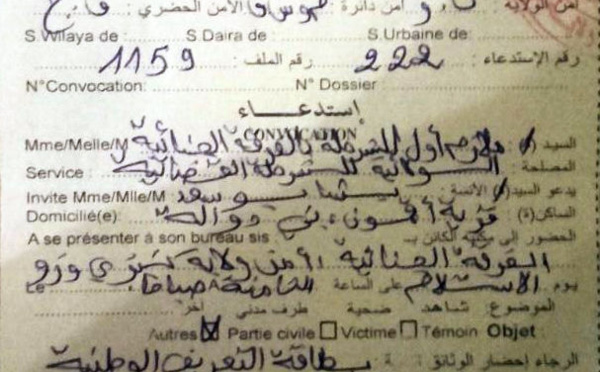 أمن الولاية: أمن دائرة: الأمن الحضري:
S.Wilaya de: S.Daira de: S.Urbaine de:
رقم الإستدعاء: 222 رقم الملف: 1159
N°Convocation: N° Dossier:
إستدعــاء
CONVOCATION
السيد ملازم أول للشرطة بالفرقة الجنائية Mme/Melle/M
المصلحة: الولائية للشرطة القضائية Service :
يدعو السيد الآنسة: سعد Invite Mme/Mlle/M
الساكن(ة): قرية بني دوالة Domicilié(e):
الحضور إلى مكتبه الكائن بـ A se présenter à son bureau sis :
الفرقة الجنائية أمن ولاية تيزي وزو
يوم الاستلام على الساعة الثامنة صباحا Le
الموضوع: شاهد ضحية طرف مدني آخر
Autres ☒ Partie civile ☐ Victime ☐ Témoin Objet :
الرجاء إحضار الوثائق: بطاقة التعريف الوطنية